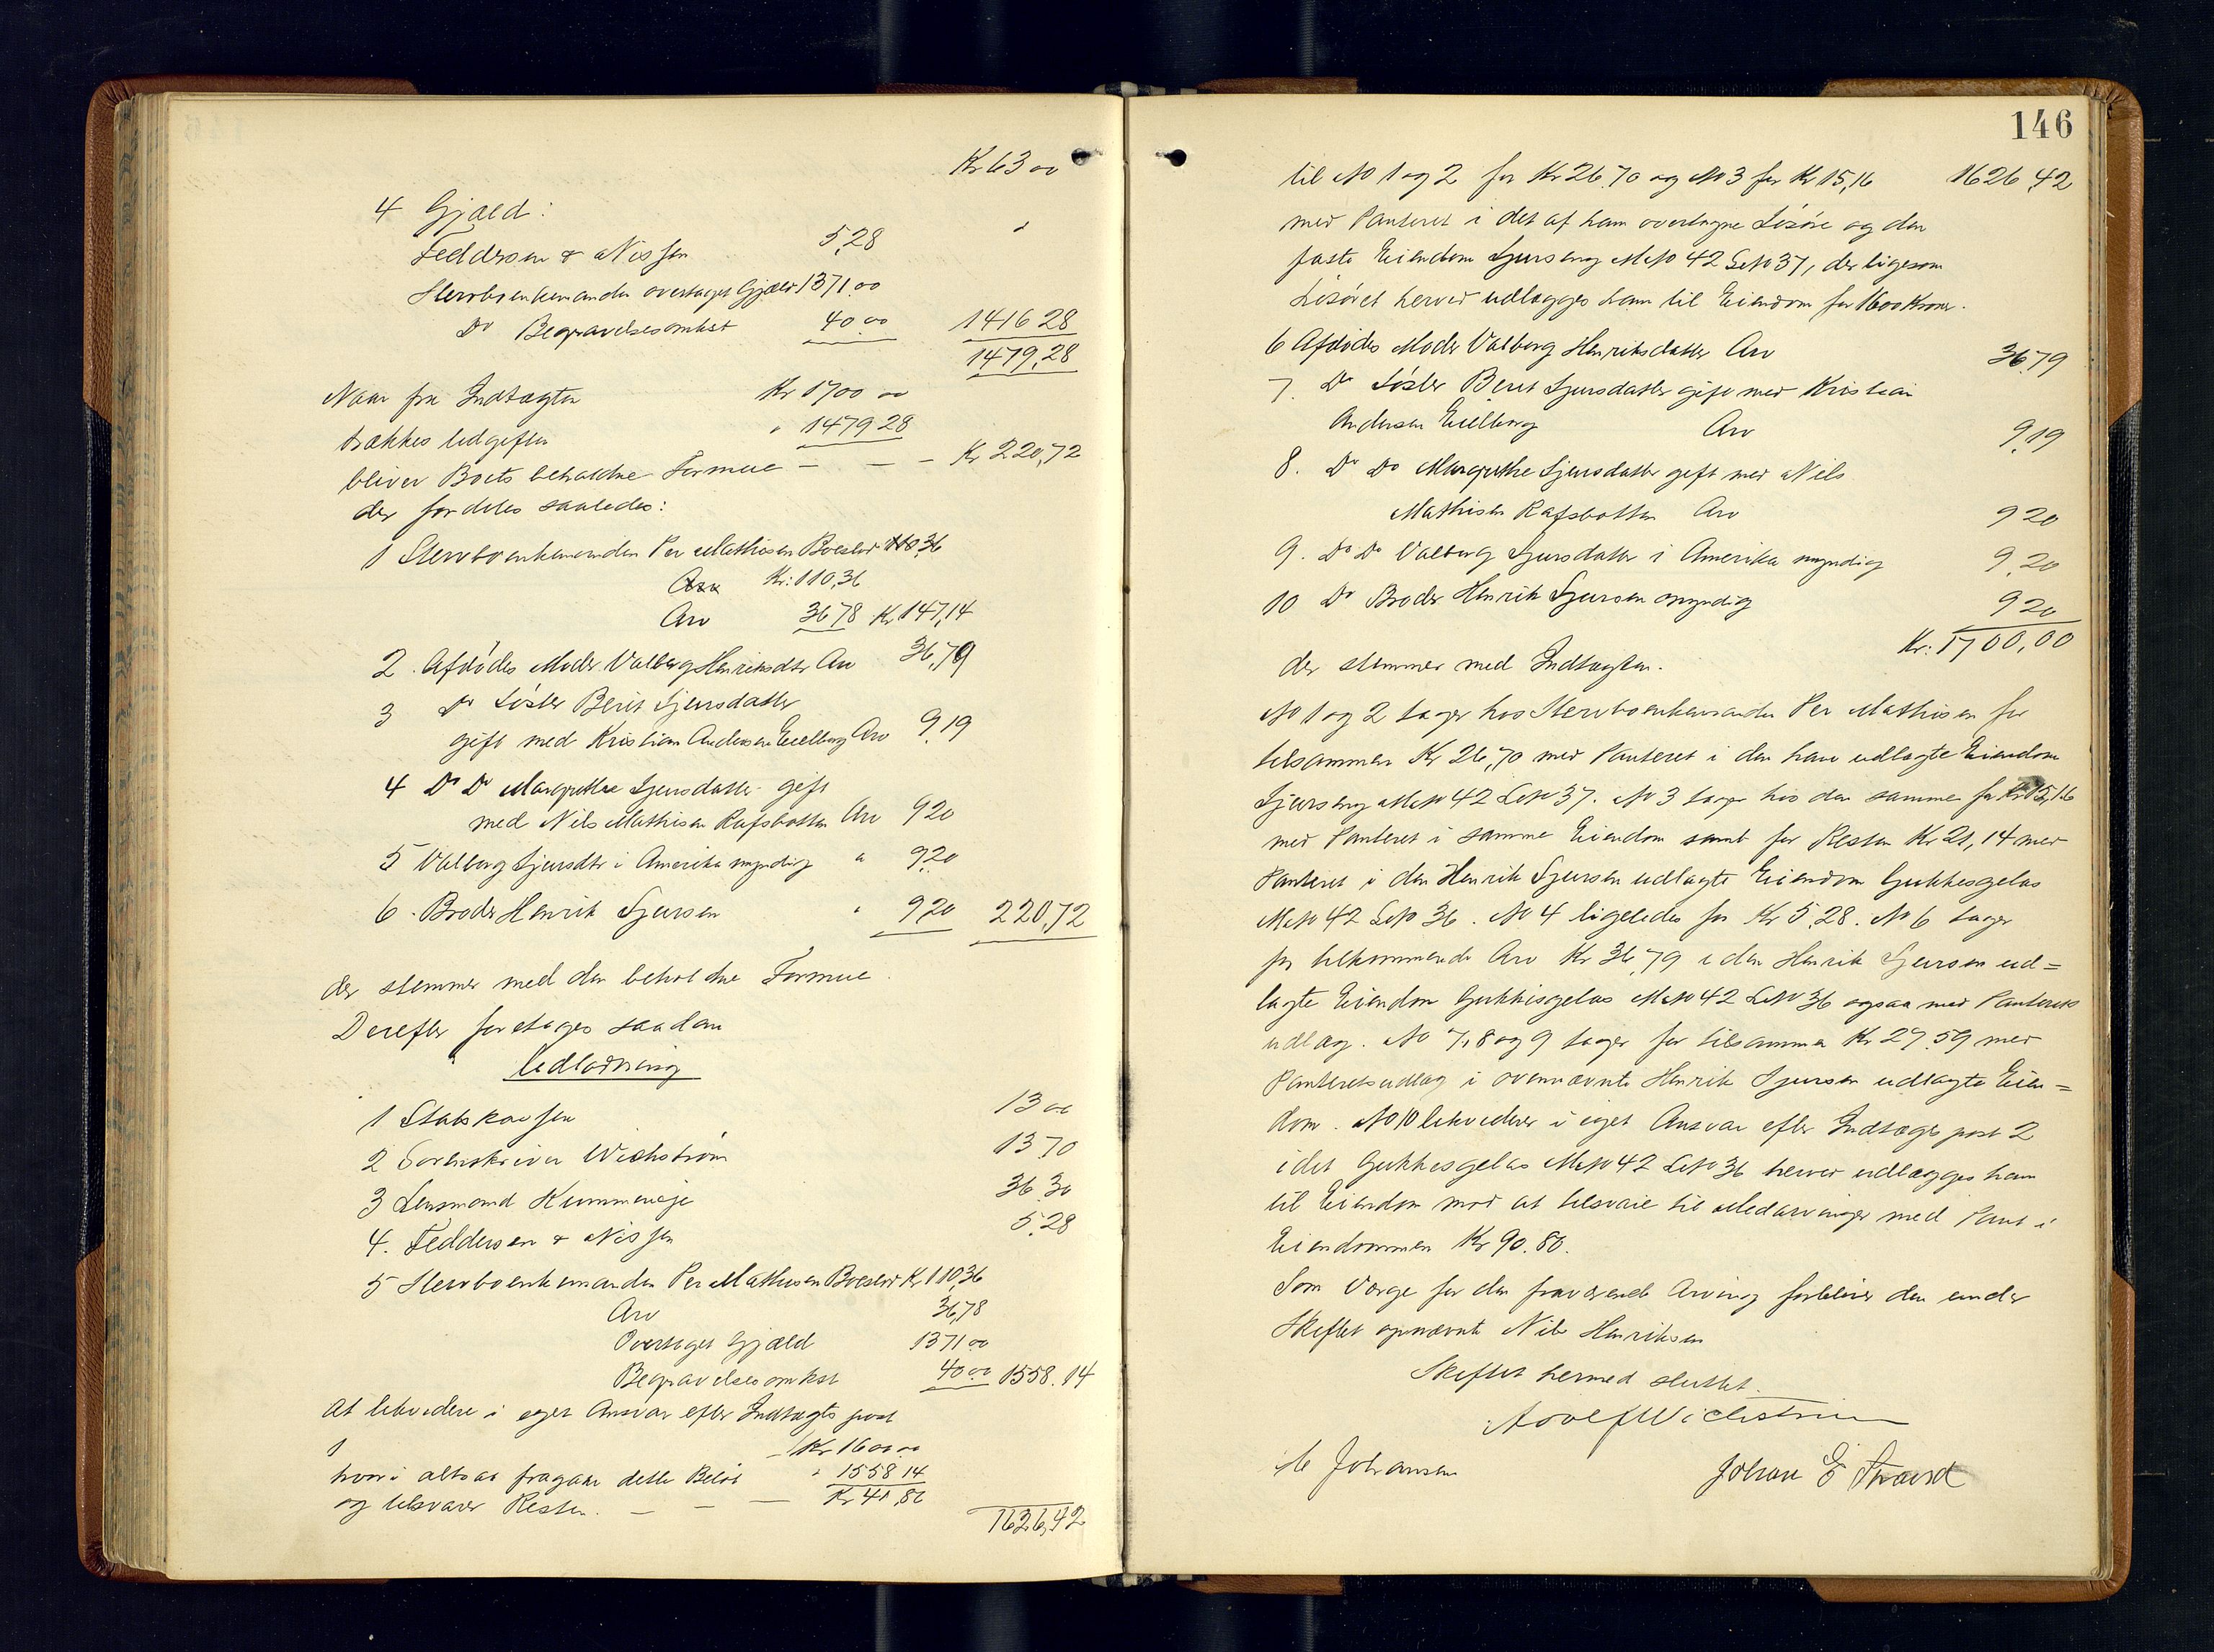 Kr 63 00
4 Gjæld:
Feddersen & Nissen 5,28
Stervboenkemanden overtaget Gjæld 1371.00
Do Begravelsesomkst 40.00 1416 28
1479.28
Naar fra Indtægten Kr 1700 00
trækkes Udgiften " 1479 28
bliver Boets beholdne Formue — — — Kr 220,72
der fordeles saaledes:
1 Stervboenkemanden Per Mathisen Boeslod 110,36
Arv Kr: 110,36
Arv 36 78 Kr 147,14
2. Afdødes Moder Valborg Henriksdtr Arv 36,79
3 Do Søster Berit Sjursdatter
gift med Kristian Andersen Eielberg Arv 9,19
4 Do Do Margrethe Sjursdatter gift
med Nils Mathisen Rafsbotten Arv 9 20
5 Valborg Sjursdtr i Amerika myndig " 9.20
6. Broder Henrik Sjursen " 9 20 220,72
der stemmer med den beholdne Formue.
Derefter foretages saadan
Udlodning
1 Statskassen 13 00
2 Sorenskriver Wichstrøm 13 70
3 Lensmand Kummeneje 36 30
4. Feddersen & Nissen 5.28
5 Stervboenkemanden Per Mathisen Boeslod Kr 110,36
Arv 36,78
Overtaget Gjæld 1371 00
Begravelsesomkst 40 00 1558.14
at likvidere i eget Ansvar efter Indtægts post
1 Kr 1600.00
hvori altsaa fragaar dette Beløb " 1558 14
og tilsvarer Resten. — — — Kr 41,86
1626,42
146
til No 1 og 2 for Kr 26.70 og No 3 for Kr 15,16 1626,42
med Panteret i det af ham overtagne Løsøre og den
faste Eiendom Sjurseng MNo 42 LNo 37, der ligesom
Løsøret herved udlægges ham til Eiendom for 1600 Kroner.
6 Afdødes Moder Valborg Henriksdatter Arv 36.79
7. Do Søster Berit Sjursdatter gift med Kristian
Andersen Eielberg Arv 9,19
8. Do Do Margrethe Sjursdatter gift med Nils
Mathisen Rafsbotten Arv 9 20
9. Do Do Valborg Sjursdatter i Amerika myndig 9.20
10 Do Broder Henrik Sjursen myndig 9 20
Kr: 1700,00
der stemmer med Indtægten.
No 1 og 2 tager hos Stervboenkemanden Per Mathisen for
tilsammen Kr 26,70 med Panteret i den ham udlagte Eiendom
Sjurseng MNo 42 LNo 37. No 3 tager hos den samme for Kr 15,16
med Panteret i samme Eiendom samt for Resten Kr 21,14 med
Panteret i den Henrik Sjursen udlagte Eiendom Gukkesgelas
MNo 42 LNo 36. No 4 ligeledes for Kr 5.28. No 6 tager
for tilkommende Arv Kr 36,79 i den Henrik Sjursen ud=
lagte Eiendom Gukkisgelas MNo 42 LNo 36 ogsaa med Panterets
udlæg. No 7, 8 og 9 tager for tilsammen Kr 27.59 med
Panteretsudlæg i ovennævnte Henrik Sjursen udlagte Eien=
dom. No 10 likviderer i eget Ansvar efter Indtægts post 2
idet Gukkesgelas MNo 42 LNo 36 herved udlægges ham
til Eiendom mod at tilsvare til Medarvinger med Pant i
Eiendommen Kr 90.80.
Som Værge for den fraværende Arving forbliver den under
Skiftet opnævnte Nils Henriksen
Skiftet hermed sluttet.
Adolf Wichstrøm
Johansen
Johan E Strand